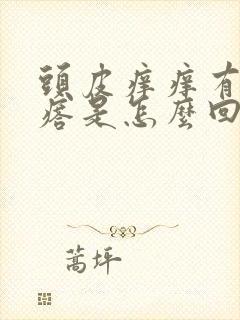 頭皮痒痒有
瘩是怎麼回
蒿坪